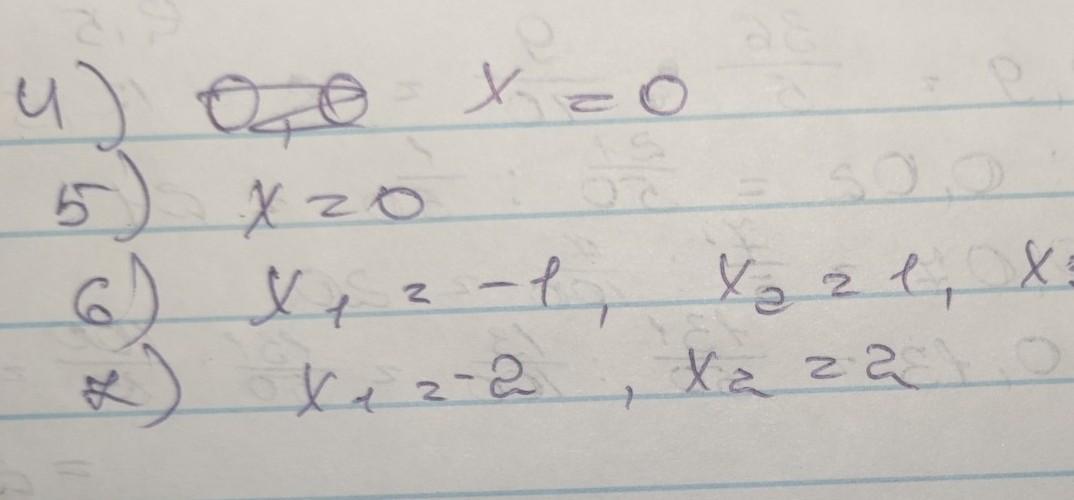 4) x = 0
5) x = 0
6) x₁ = -1, x₂ = 1, x
7) x₁ = -2, x₂ = 2